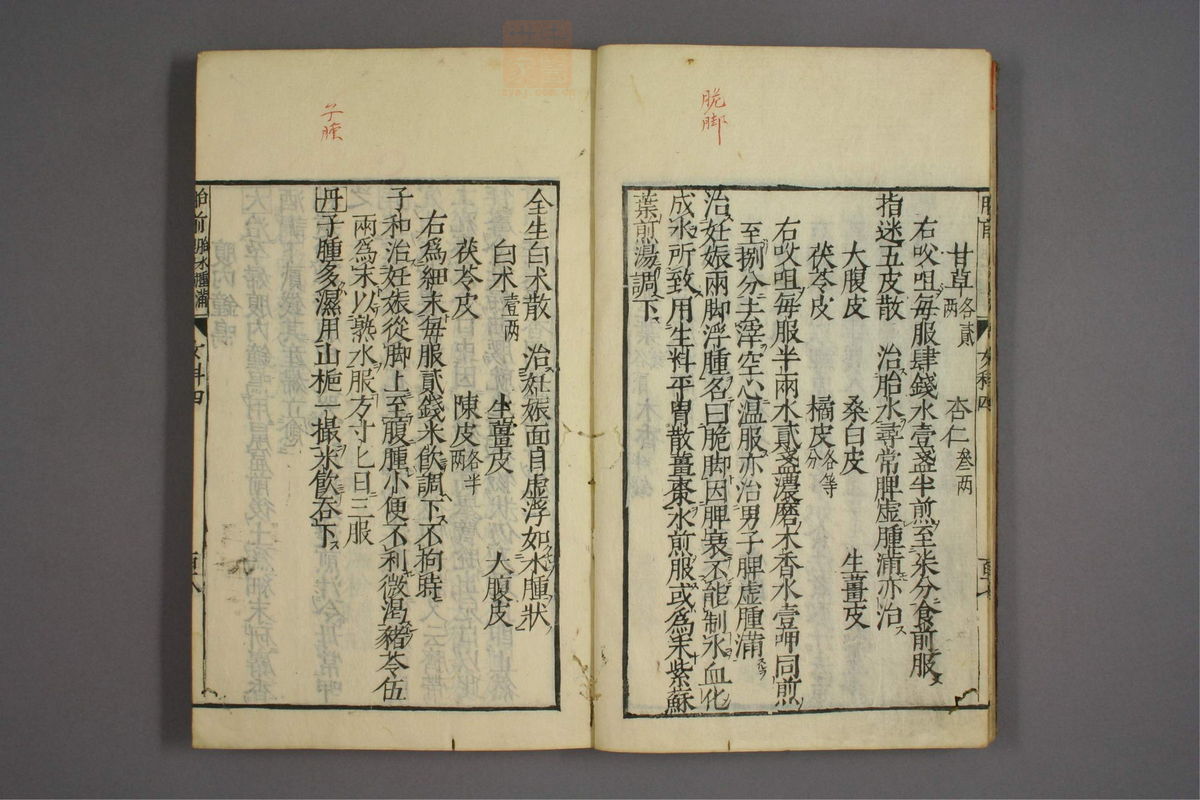 脆脚
甘草各貳两 杏仁叁两
右㕮咀毎服肆錢水壹盞半煎至柒分食前服
指迷五皮散 治胎水尋常脾虛腫滿亦治
大腹皮 桑白皮 生薑皮
茯苓皮 橘皮各等分
右㕮咀毎服半兩水貳盞濃磨木香水壹呷同煎
至捌分去滓空心温服亦治男子脾虛腫滿
治妊娠兩脚浮腫名曰脆脚因脾衰不能制水血化
成水所致用生料平胃散薑棗水煎服或爲末紫蘇
葉煎湯調下
子腫
全生白术散 治妊娠面目虛浮如水腫狀
白术壹两 生薑皮 大腹皮
茯苓皮 陳皮各半两
右爲細末毎服貳錢米飮調下不拘時
子和治妊娠從脚上至腹腫小便不利微渴豬苓伍
兩爲末以熟水服方寸匕日三服
丹子腫多濕用山梔一撮米飮吞下
胎前 胎水腫滿 女科四